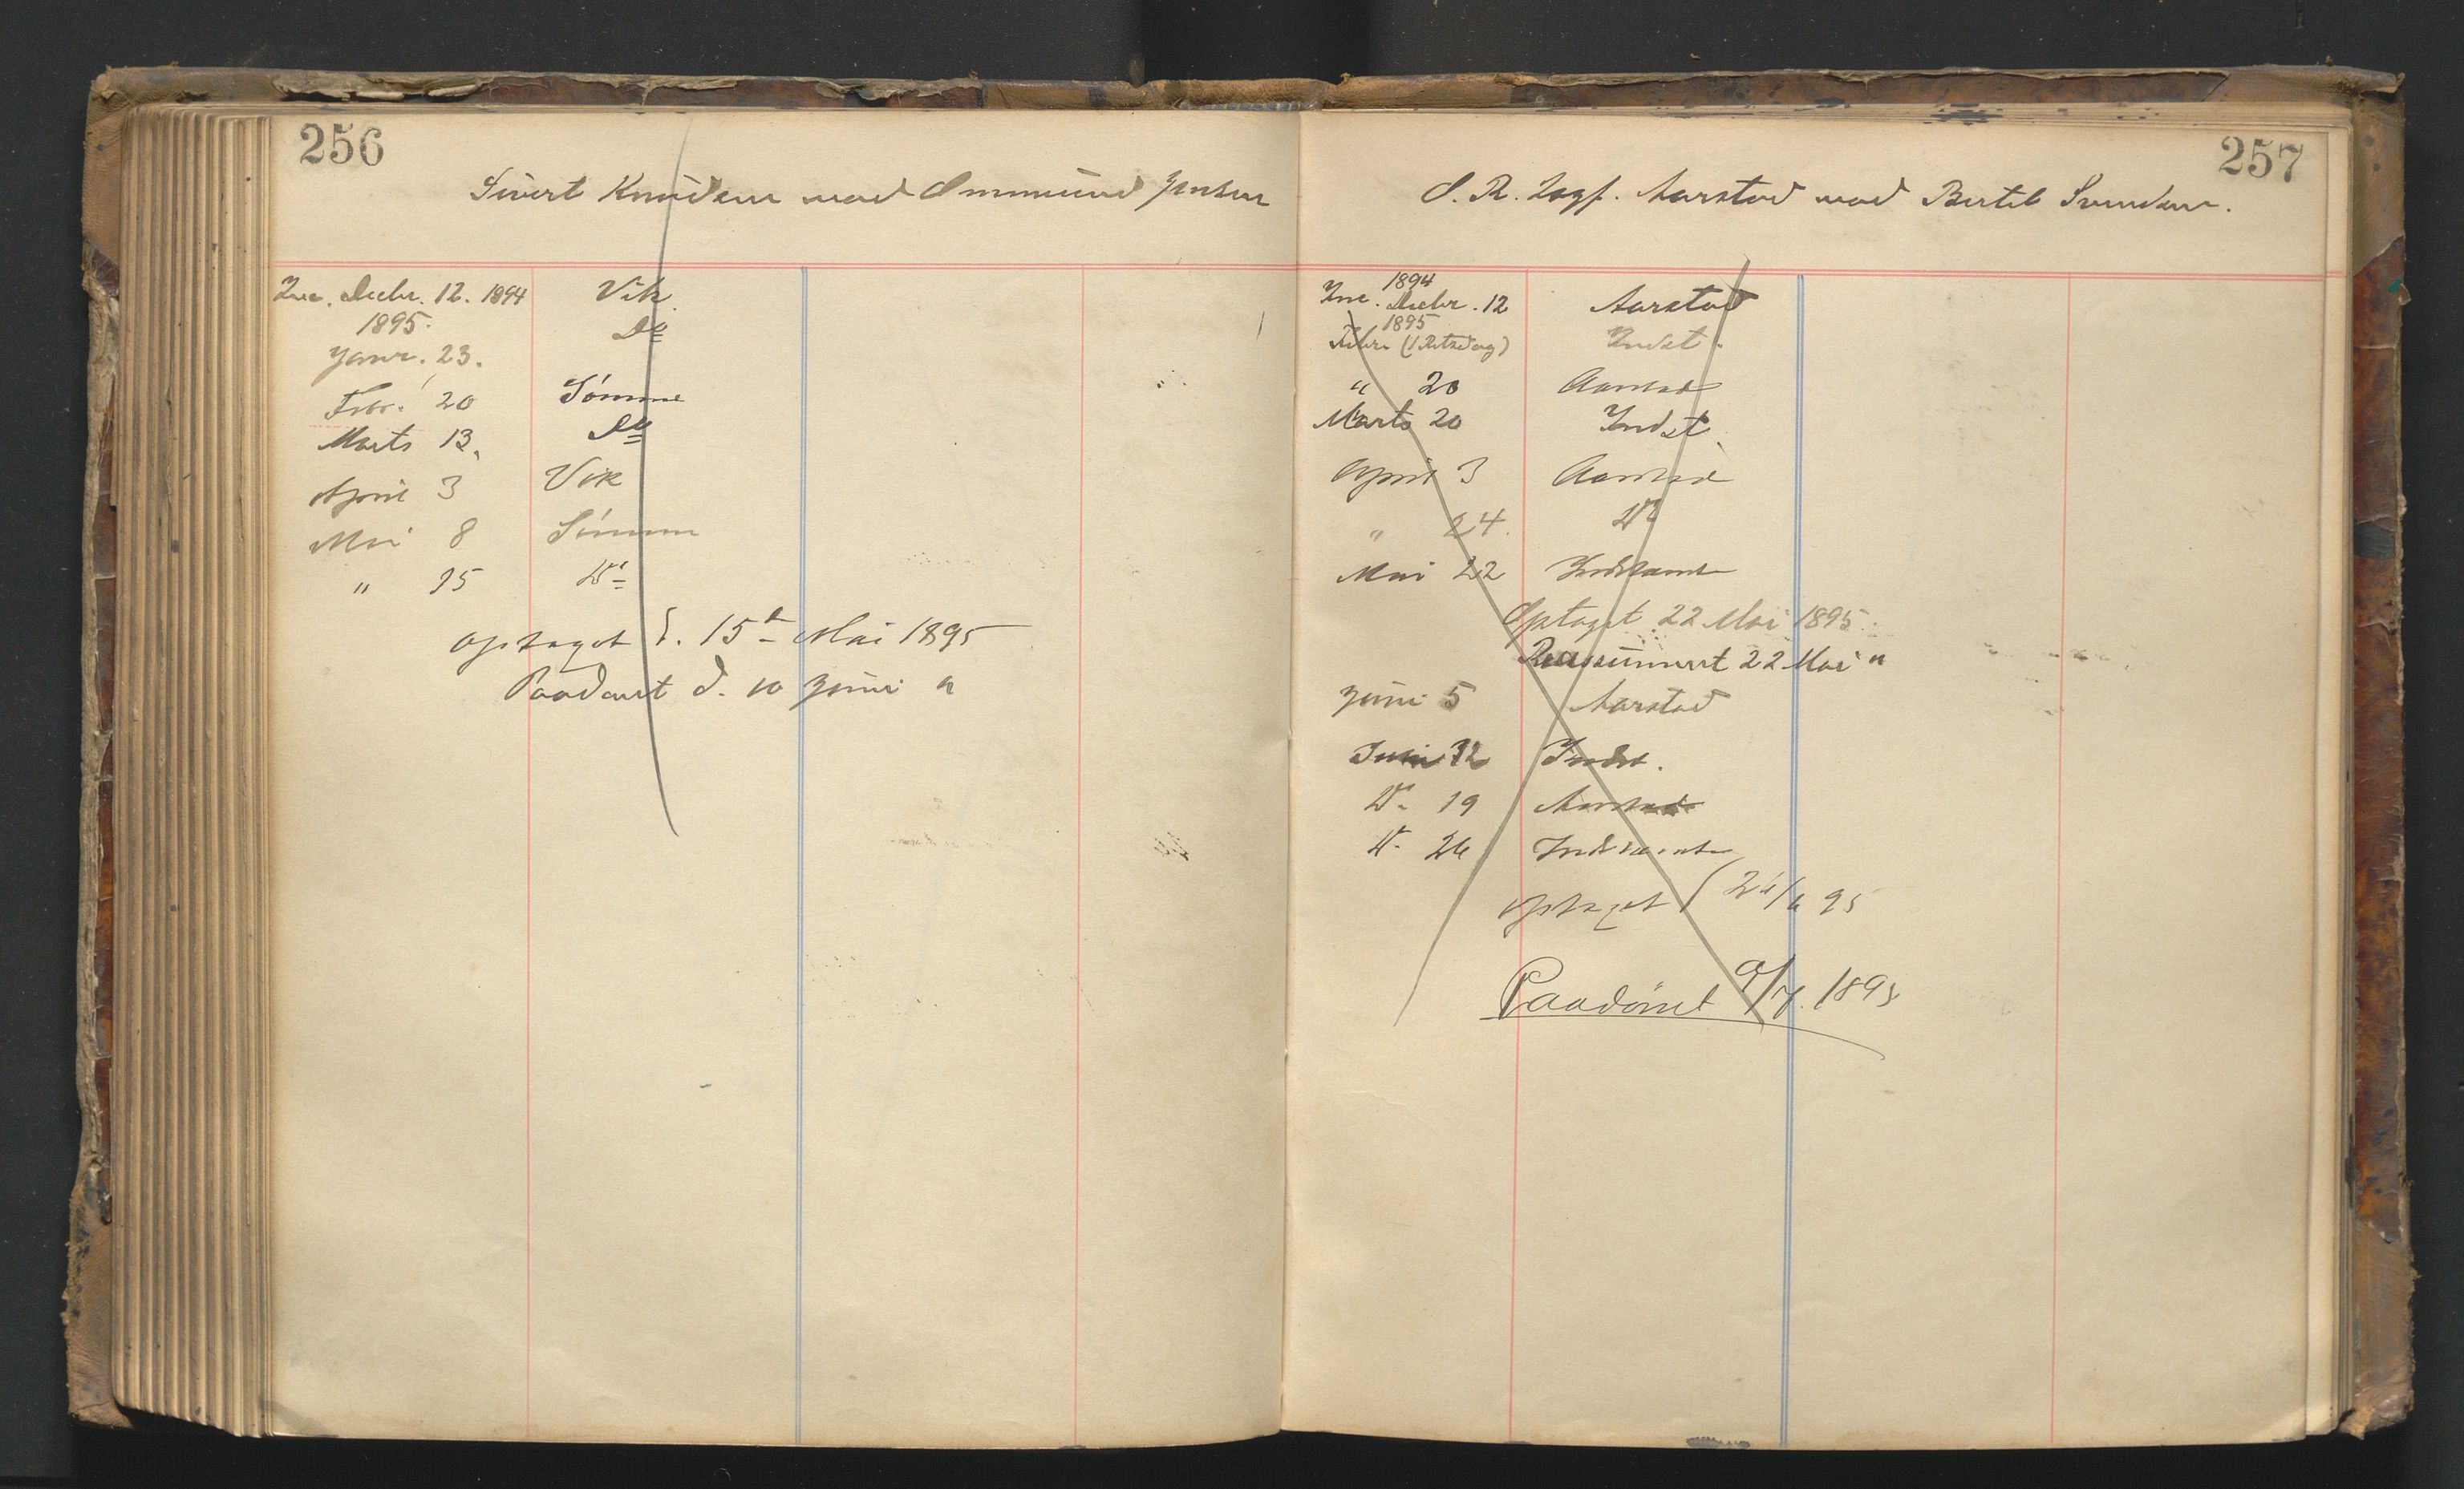 256
Sivert Knudsen mod Ommund Jensen
Inc. Decbr. 12. 1894 Vik
1895. Do
Janr. 23.
Febr. 20 Sömme
Marts 13. Do
April 3 Vik
Mai 8 Sömme
" 15 Do
Optaget d. 15de Mai 1895
Paadömt d. 10 Juni "
257
O. R. Sagf. Aarstad mod Bertil Svendsen.
1894
Inc. Decbr. 12 Aarstad
1895
Febr. (1 Retsdag) Indst.
" 20 Aarstad
Marts 20 Indst.
April 3 Aarstad
" 24. Do
Mai 22 Indstævnte
Optaget 22 Mai 1895.
Reassumert 22 Mai "
Juni 5 Aarstad
Juni 12 Indst.
Do 19 Aarstad
Do 26 Indstævnte
Optaget 26/6 95
Paadömt 9/7. 1895